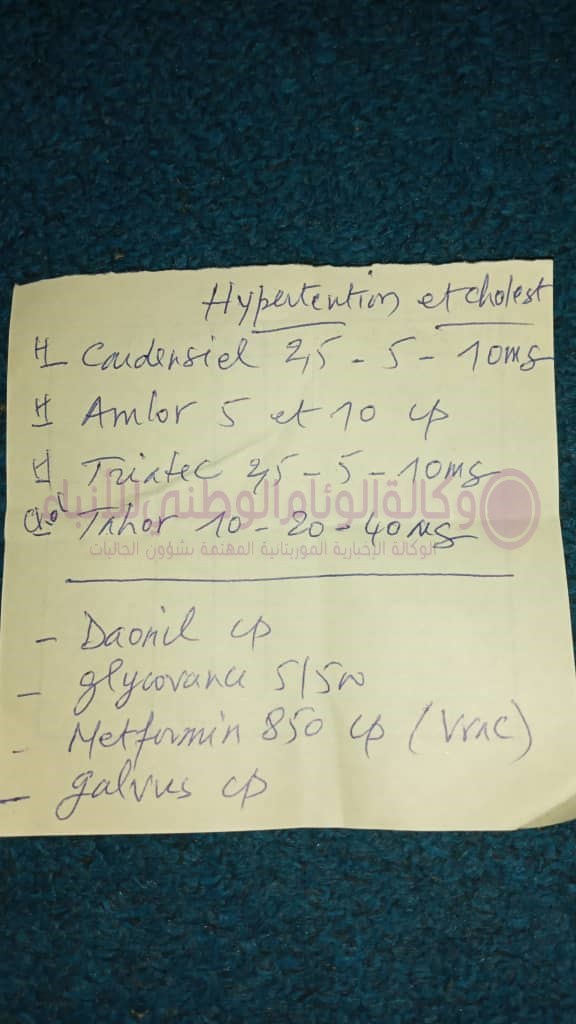 Hypertention et cholest
H Condensiel 2,5 - 5 - 10mg
H Amlor 5 et 10 cp
H Triatec 2,5 - 5 - 10mg
وكالة الوئام الوطني للأنباء
Chol Tahor 10 - 20 - 40mg
الوكالة الإخبارية الموريتانية المهتمة بشؤون الجاليات
- Daonil cp
- glycovance 5/500
- Metformin 850 cp (Vrac)
- galvus cp